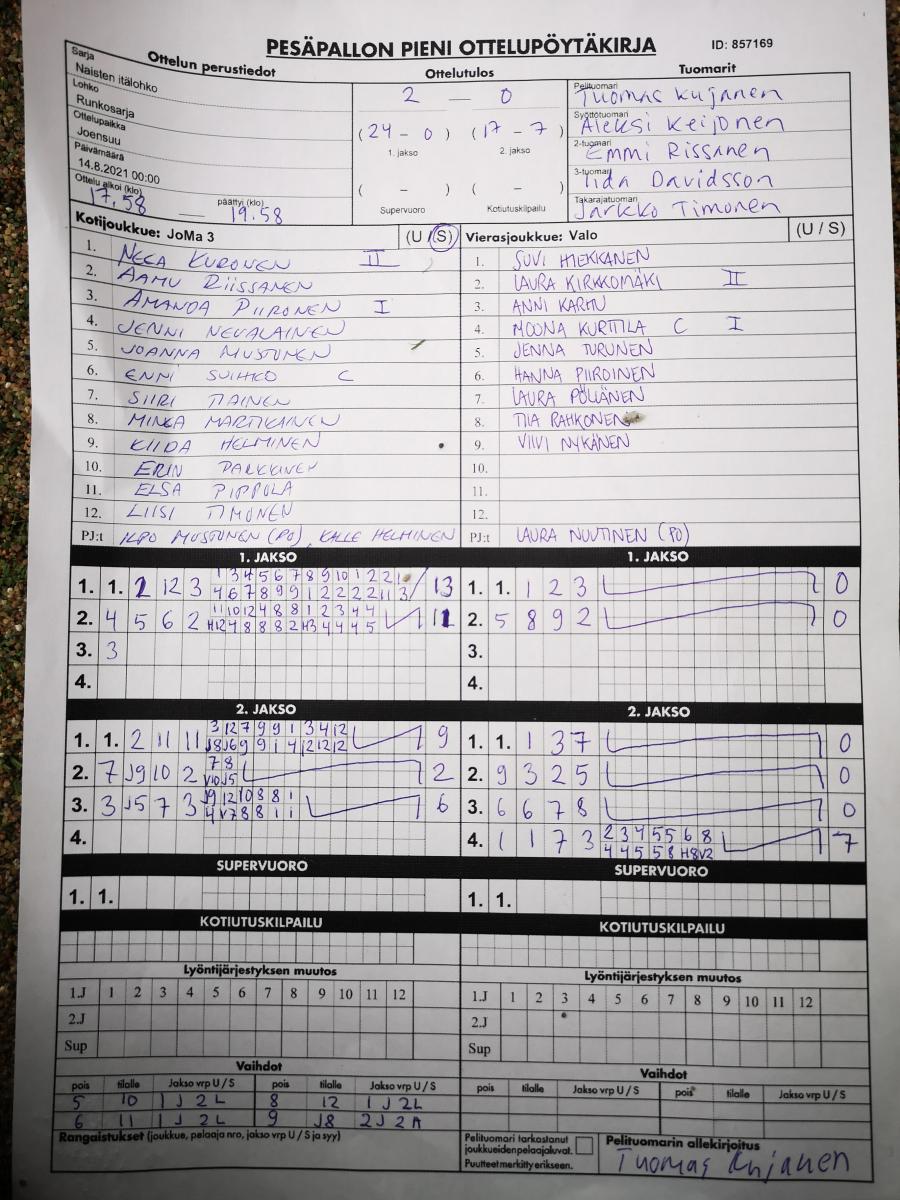 PESÄPALLON PIENI OTTELUPÖYTÄKIRJA
ID: 857169
Ottelun perustiedot
Sarja
Naisten itälohko
Lohko
Runkosarja
Ottelupaikka
Joensuu
Päivämäärä
14.8.2021 00:00
Ottelu alkoi (klo) päättyi (klo)
17.58 — 19.58
Ottelutulos
2 — 0
(24 - 0) (17 - 7)
1. jakso 2. jakso
( - ) ( - )
Supervuoro Kotiutuskilpailu
Tuomarit
Pelituomari
Tuomas Kujanen
Syöttötuomari
Aleksi Keijonen
2-tuomari
Emmi Rissanen
3-tuomari
Iida Davidsson
Takarajatuomari
Jarkko Timonen
Kotijoukkue: JoMa 3 (U / S)
1. NEEA KURONEN II
2. AAMU RIISSANEN
3. AMANDA PIIRONEN I
4. JENNI NEVALAINEN
5. JOANNA MUSTONEN
6. ENNI SUIHKO C
7. SIIRI TIAINEN
8. MINKA MARTIKAINEN
9. KIIDA HELMINEN
10. ERIN PARKKINEN
11. ELSA PIPPOLA
12. LIISI TIMONEN
PJ:t ILPO MUSTONEN (PO), KALLE HELMINEN
Vierasjoukkue: Valo (U / S)
1. SUVI HIEKKANEN
2. LAURA KIRKKOMÄKI II
3. ANNI KARTTU
4. MOONA KURTTILA C I
5. JENNA TURUNEN
6. HANNA PIIROINEN
7. LAURA PÖLLÄNEN
8. TIIA RAHKONEN
9. VIIVI NYKÄNEN
10.
11.
12.
PJ:t LAURA NUUTINEN (PO)
1. JAKSO
1. 1. 1 12 3
13
2. 4 5 6 2
11
3. 3
4.
1. JAKSO
1. 1. 1 2 3 0
2. 5 8 9 2 0
3.
4.
2. JAKSO
1. 1. 2 11 11
3 12 7 9 9 1 3 4 12
9
2. 7 J9 10 2
7 8
V10 J5
2
3. 3 J5 7 3
J9 12 10 8 8 1
4 V7 8 8 1 1
6
4.
2. JAKSO
1. 1. 1 3 7 0
2. 9 3 2 5 0
3. 6 6 7 8 0
4. 1 1 7 3
2 3 4 5 5 6 8
4 4 5 5 8 H8 V2
7
SUPERVUORO
1. 1.
SUPERVUORO
1. 1.
KOTIUTUSKILPAILU
KOTIUTUSKILPAILU
Lyöntijärjestyksen muutos
1.J 1 2 3 4 5 6 7 8 9 10 11 12
2.J
Sup
Lyöntijärjestyksen muutos
1.J 1 2 3 4 5 6 7 8 9 10 11 12
2.J
Sup
Vaihdot
pois tilalle Jakso vrp U / S pois tilalle Jakso vrp U / S
5 10 1 J 2 L 8 12 1 J 2L
6 11 1 J 2 L 9 J8 2J 2A
Vaihdot
pois tilalle Jakso vrp U / S pois tilalle Jakso vrp U / S
Rangaistukset (joukkue, pelaaja nro, jakso vrp U / S ja syy)
Pelituomari tarkastanut
joukkueiden pelaajaluvat.
Puutteet merkitty erikseen.
Pelituomarin allekirjoitus
Tuomas Kujanen